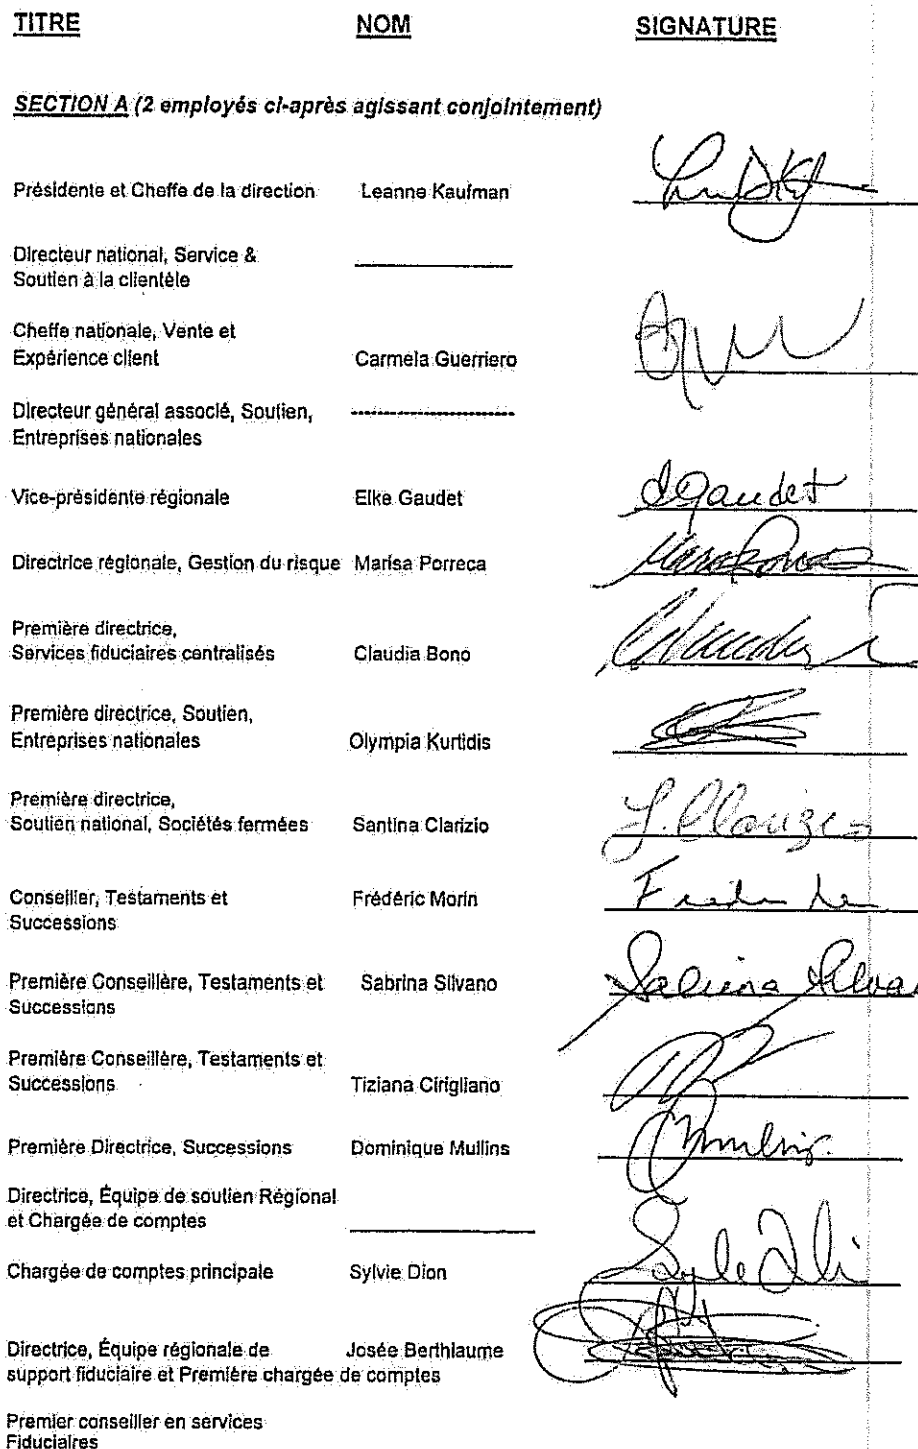 TITRE NOM SIGNATURE
SECTION A (2 employés ci-après agissant conjointement)
Présidente et Cheffe de la direction Leanne Kaufman
Directeur national, Service &
Soutien à la clientèle
Cheffe nationale, Vente et
Expérience client Carmela Guerriero
Directeur général associé, Soutien,
Entreprises nationales
Vice-présidente régionale Elke Gaudet EGaudet
Directrice régionale, Gestion du risque Marisa Porreca
Première directrice,
Services fiduciaires centralisés Claudia Bono
Première directrice, Soutien,
Entreprises nationales Olympia Kurtidis
Première directrice,
Soutien national, Sociétés fermées Santina Clarizio S. Clarizio
Conseiller, Testaments et Frédéric Morin
Successions
Première Conseillère, Testaments et Sabrina Silvano Sabrina Silva
Successions
Première Conseillère, Testaments et
Successions Tiziana Cirigliano
Première Directrice, Successions Dominique Mullins
Directrice, Équipe de soutien Régional
et Chargée de comptes
Chargée de comptes principale Sylvie Dion
Directrice, Équipe régionale de Josée Berthiaume
support fiduciaire et Première chargée de comptes
Premier conseiller en services
Fiduciaires